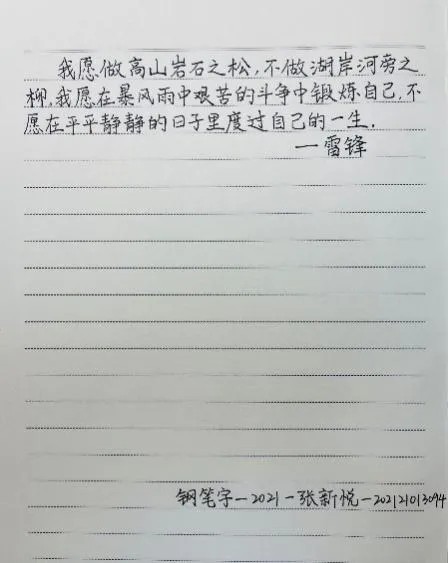 我愿做高山岩石之松,不做湖岸河旁之
柳,我愿在暴风雨中艰苦的斗争中锻炼自己,不
愿在平平静静的日子里度过自己的一生.
一雷锋
钢笔字-2021-张新悦-202121013094